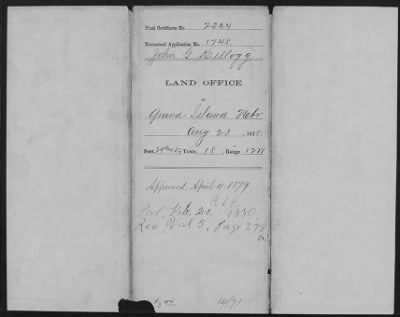 Final Certificate No. 2364
Homestead Application No. 1748
John G Kellogg
LAND OFFICE
AT
Grand Island Nebr
Aug 23, 187
Sect. Town. 18, Range 12W
Approved April 9 1879
Pat. Feb. 20. 1880.
Rec Vol 5, Page 278